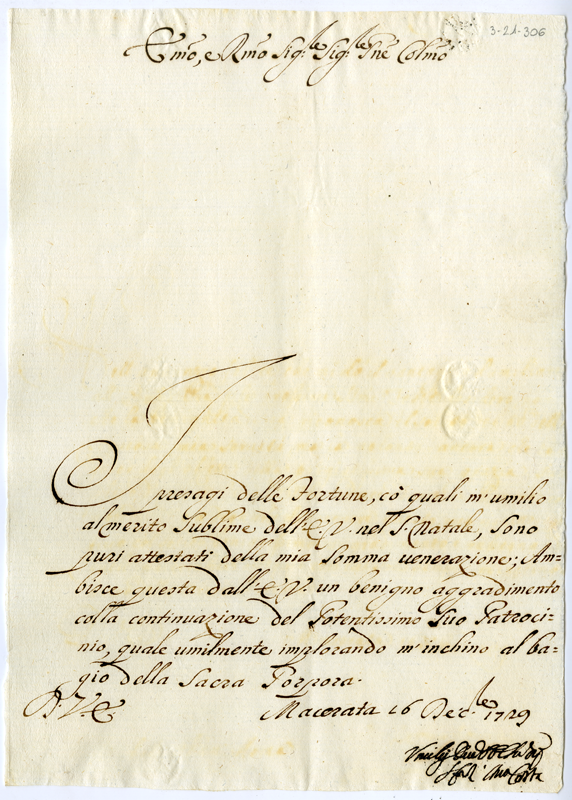 3-21-306
Emo, e Rmo Sig.re Sig.re Pne Colmo
I
presagi delle Fortune, cõ quali m'umilio
al merito sublime dell'E.V. nel S. Natale, sono
puri attestati della mia somma venerazione; Am=
bisce questa dall'E.V. un benigno aggradimento
colla continuazione del Potentissimo suo Patroci=
nio, quale umilmente implorando m'inchino al ba=
gio della Sacra Porpora.
D. V. E. Macerata 16 Dec.re 1729